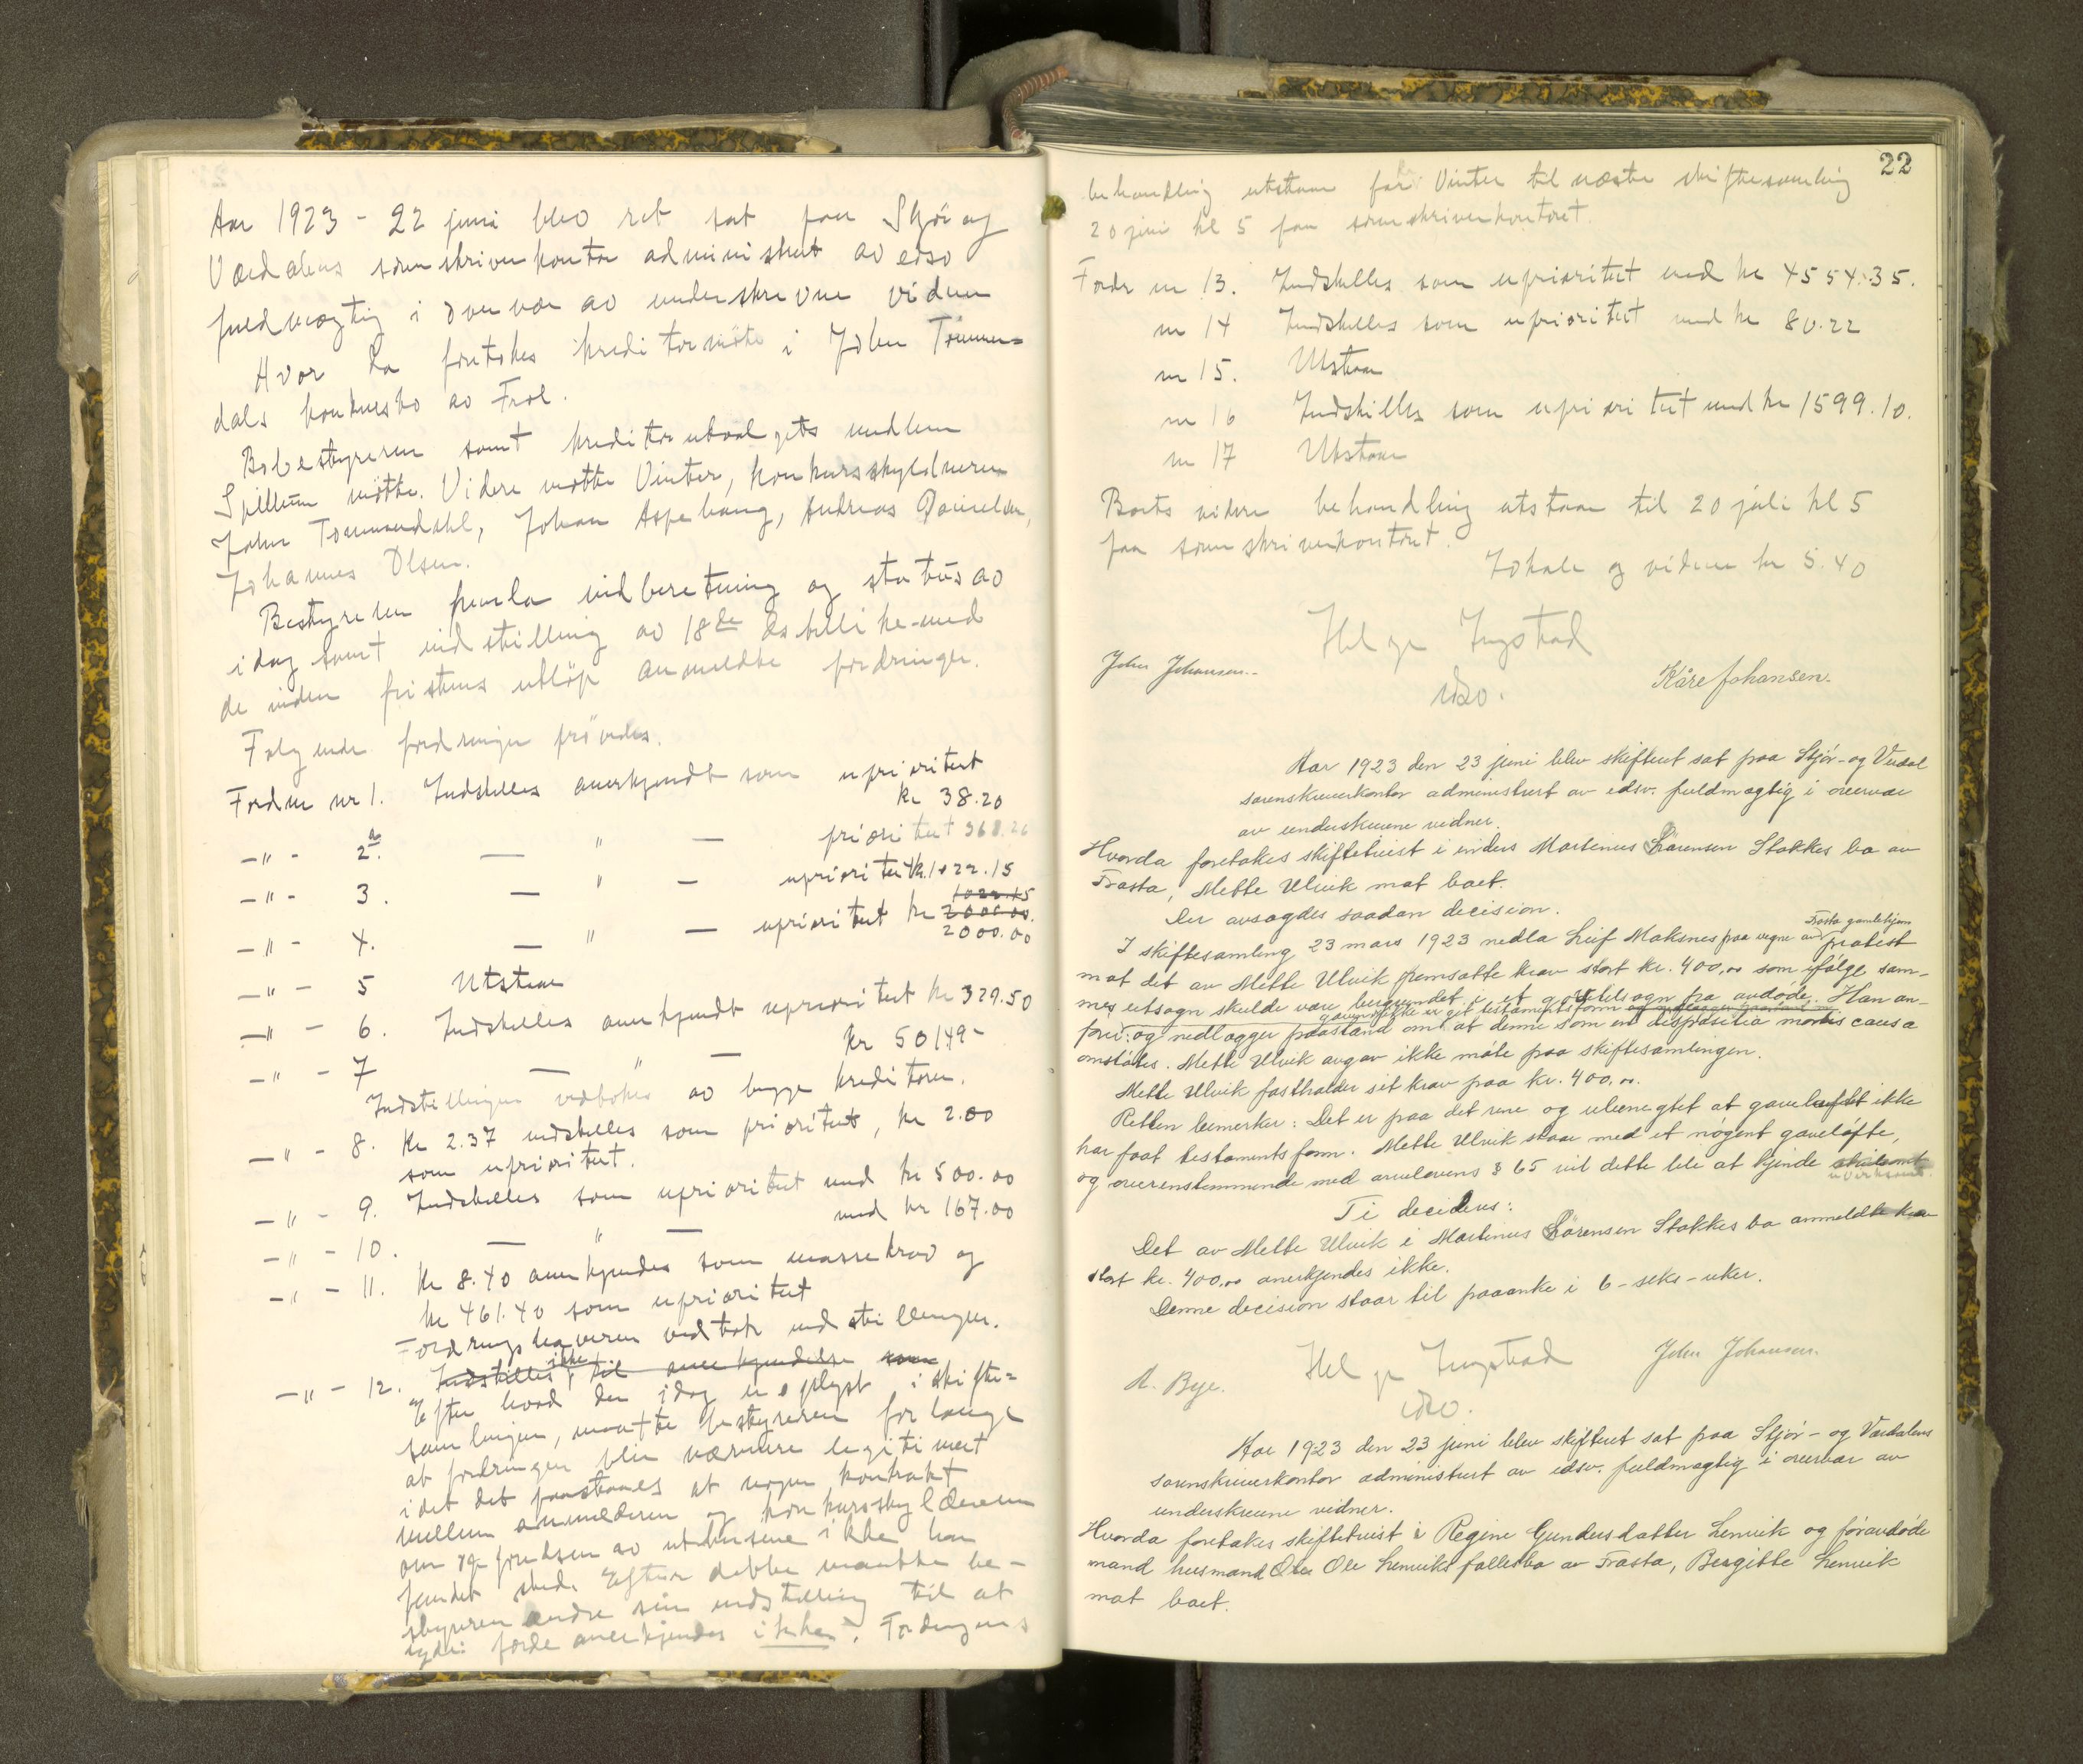 Aar 1923 - 22 juni blev ret sat paa Stjør og
Værdalens sorenskriverkontor administrert av edsv
fuldmægtig i overvær av underskrevne vidner
Hvor da foretokes kreditormøte i John Tømmer=
dals konkursbo av Frol.
Bobestyreren samt kreditorutvalgets medlem
Spillum møtte. Videre møtte Vinter, konkursskyldneren
John Tømmerdahl, Johan Aspehaug, Andreas Danielsen,
Johannes Olsen.
Bestyreren fremla indberetning og status av
idag samt indstilling av 18de ds tillike-med
de inden fristens utløp anmeldte fordringer.
Følgende fordringer prøvedes.
Fordr nr 1. Indstilles anerkjendt som uprioritert
kr 38.20
-"- 2a. — " — prioritert 368.26
uprioritert kr. 1022.15
-"- 3. — " — uprioritert kr 2000.00
1022.15
-"- 4. — " — 2000.00
-"- 5 Utstaar
-"- 6. Indstilles anerkjendt uprioritert kr 329.50
-"- 7 — " — kr 50149-
Indstillingen vedtokes av begge kreditorer.
-"- 8. Kr 2.37 indstilles som prioritert, kr 2.00
som uprioritert.
-"- 9. Indstilles som uprioritert med kr 500.00
-"- 10. — " — med kr 167.00
-"- 11. Kr 8.40 anerkjendes som massekrav og
kr 461.40 som uprioritert
Fordringshaveren vedtok indstillingen.
-"- 12. Indstilles ikke til anerkjendelse som
Efter hvad der idag er oplyst i skifte=
samlingen, maatte bestyreren forlange
at fordringen blir nærmere legitimert
idet det paastaaes at nogen kontrakt
mellem anmelderen og konkursskyldneren
om opførelsen av uthusene ikke har
fundet sted. Efter dette maatte be-
styreren ændre sin indstilling til at
anerkjendes ikke. Fordringens
22
behandling utstaar for Vinter til næste skiftesamling
20 juni kl 5 paa sorenskriverkontoret.
Fordr nr 13. Indstilles som uprioritert med kr 4554.35.
nr 14 Indstilles som uprioritert med kr 80.22
nr 15. Utstaar
nr 16 Indstilles som uprioritert med kr 1599.10.
nr 17 Utstaar
Boets videre behandling utstaar til 20 juli kl 5
paa sorenskriverkontoret.
Lokale og vidner kr 5.40
Helge Ingstad
edsv.
John Johansen.
Kåre Johansen.
Aar 1923 den 23 juni blev skifteret sat paa Stjør- og Værdal
sorenskriverkontor administrert av edsv. fuldmægtig i overvær
av underskrevne vidner.
Hvorda foretokes skiftetvist i enders Martinus Sørensen Stokkes bo av
Frosta, Mette Ulvik mot boet.
Der avsagdes saadan decision.
I skiftesamling 23 mars 1923 nedla Leif Moksnes paa vegne av Frosta gamlehjem protest
mot det av Mette Ulvik fremsatte krav stort kr. 400,00 som ifølge sam-
mes utsagn skulde være begrundet i et gavetilsagn fra avdøde. Han an-
fører: gaven ikke er git testaments form og nedlægger paastand om at denne som en disposetia mortis causa
omstøtes. Mette Ulvik avgav ikke møte paa skiftesamlingen.
Mette Ulvik fastholder sit krav paa kr. 400,00.
Retten bemerker: Det er paa det rene og ubenegtet at gaveløftet ikke
har faat testaments form. Mette Ulvik staar med et nøgent gaveløfte,
og overensstemmende med arvelovens § 65 vil dette bli at kjende uvirksomt
Ti decideres:
Det av Mette Ulvik i Martinus Sørensen Stokkes bo anmeldte krav
stort kr. 400,00 anerkjendes ikke.
Denne decision staar til paaanke i 6-seks-uker.
Helge Ingstad
edsv.
John Johansen.
A. Bye.
Aar 1923 den 23 juni blev skifteret sat paa Stjør- og Værdalens
sorenskriverkontor administrert av edsv. fuldmægtig i overvær av
underskrevne vidner.
Hvorda foretokes skiftetvist i Regine Gundersdatter Lenvik og føravdøde
mand husmand Ole Lenviks fællesbo av Frosta, Bergitte Lenvik
mot boet.